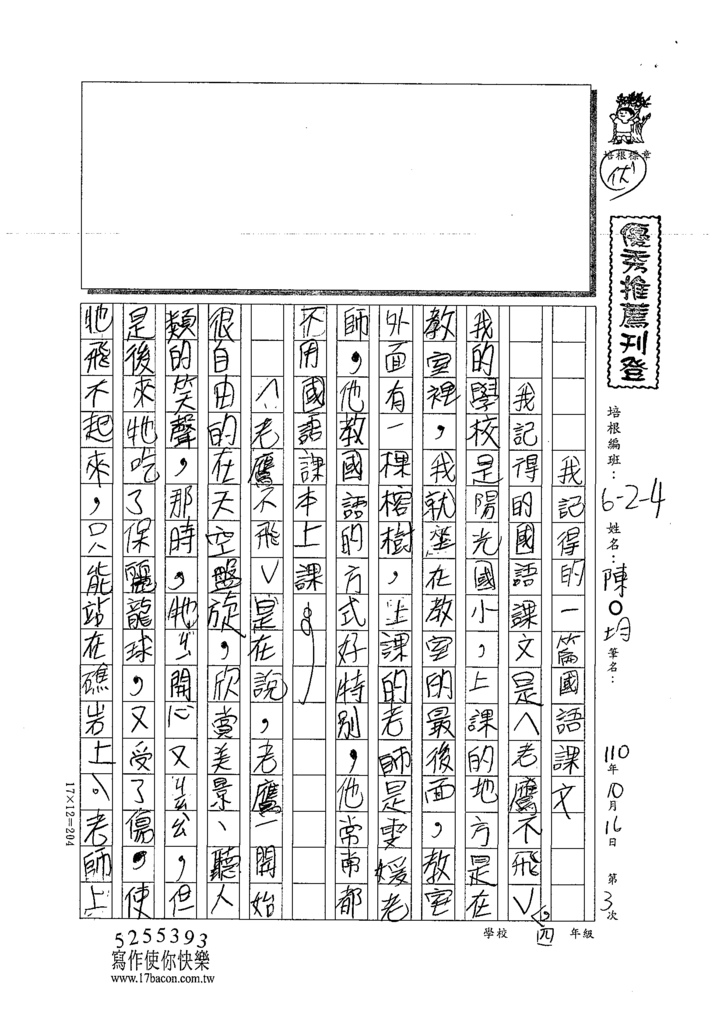 培根標章
優
優秀推薦刊登
培根編班：6-2-4 姓名：陳○均 筆名：
110年10月16日 第3次
學校 四 年級
我記得的一篇國語課文
我記得的國語課文是〈老鷹不飛〉，
我的學校是陽光國小，上課的地方是在
教室裡，我就坐在教室的最後面，教室
外面有一棵榕樹，上課的老師是雯媛老
師，他教國語的方式好特別，他常常都
不用國語課本上課。
〈老鷹不飛〉是在說，老鷹一開始
很自由的在天空盤旋，欣賞美景、聽人
類的笑聲，那時，牠ㄧㄡ開心又ㄓㄨㄤ公，但
是後來牠吃了保麗龍球，又受了傷，使
牠飛不起來，只能站在礁岩上。老師上
17×12=204
5255393
寫作使你快樂
www.17bacon.com.tw